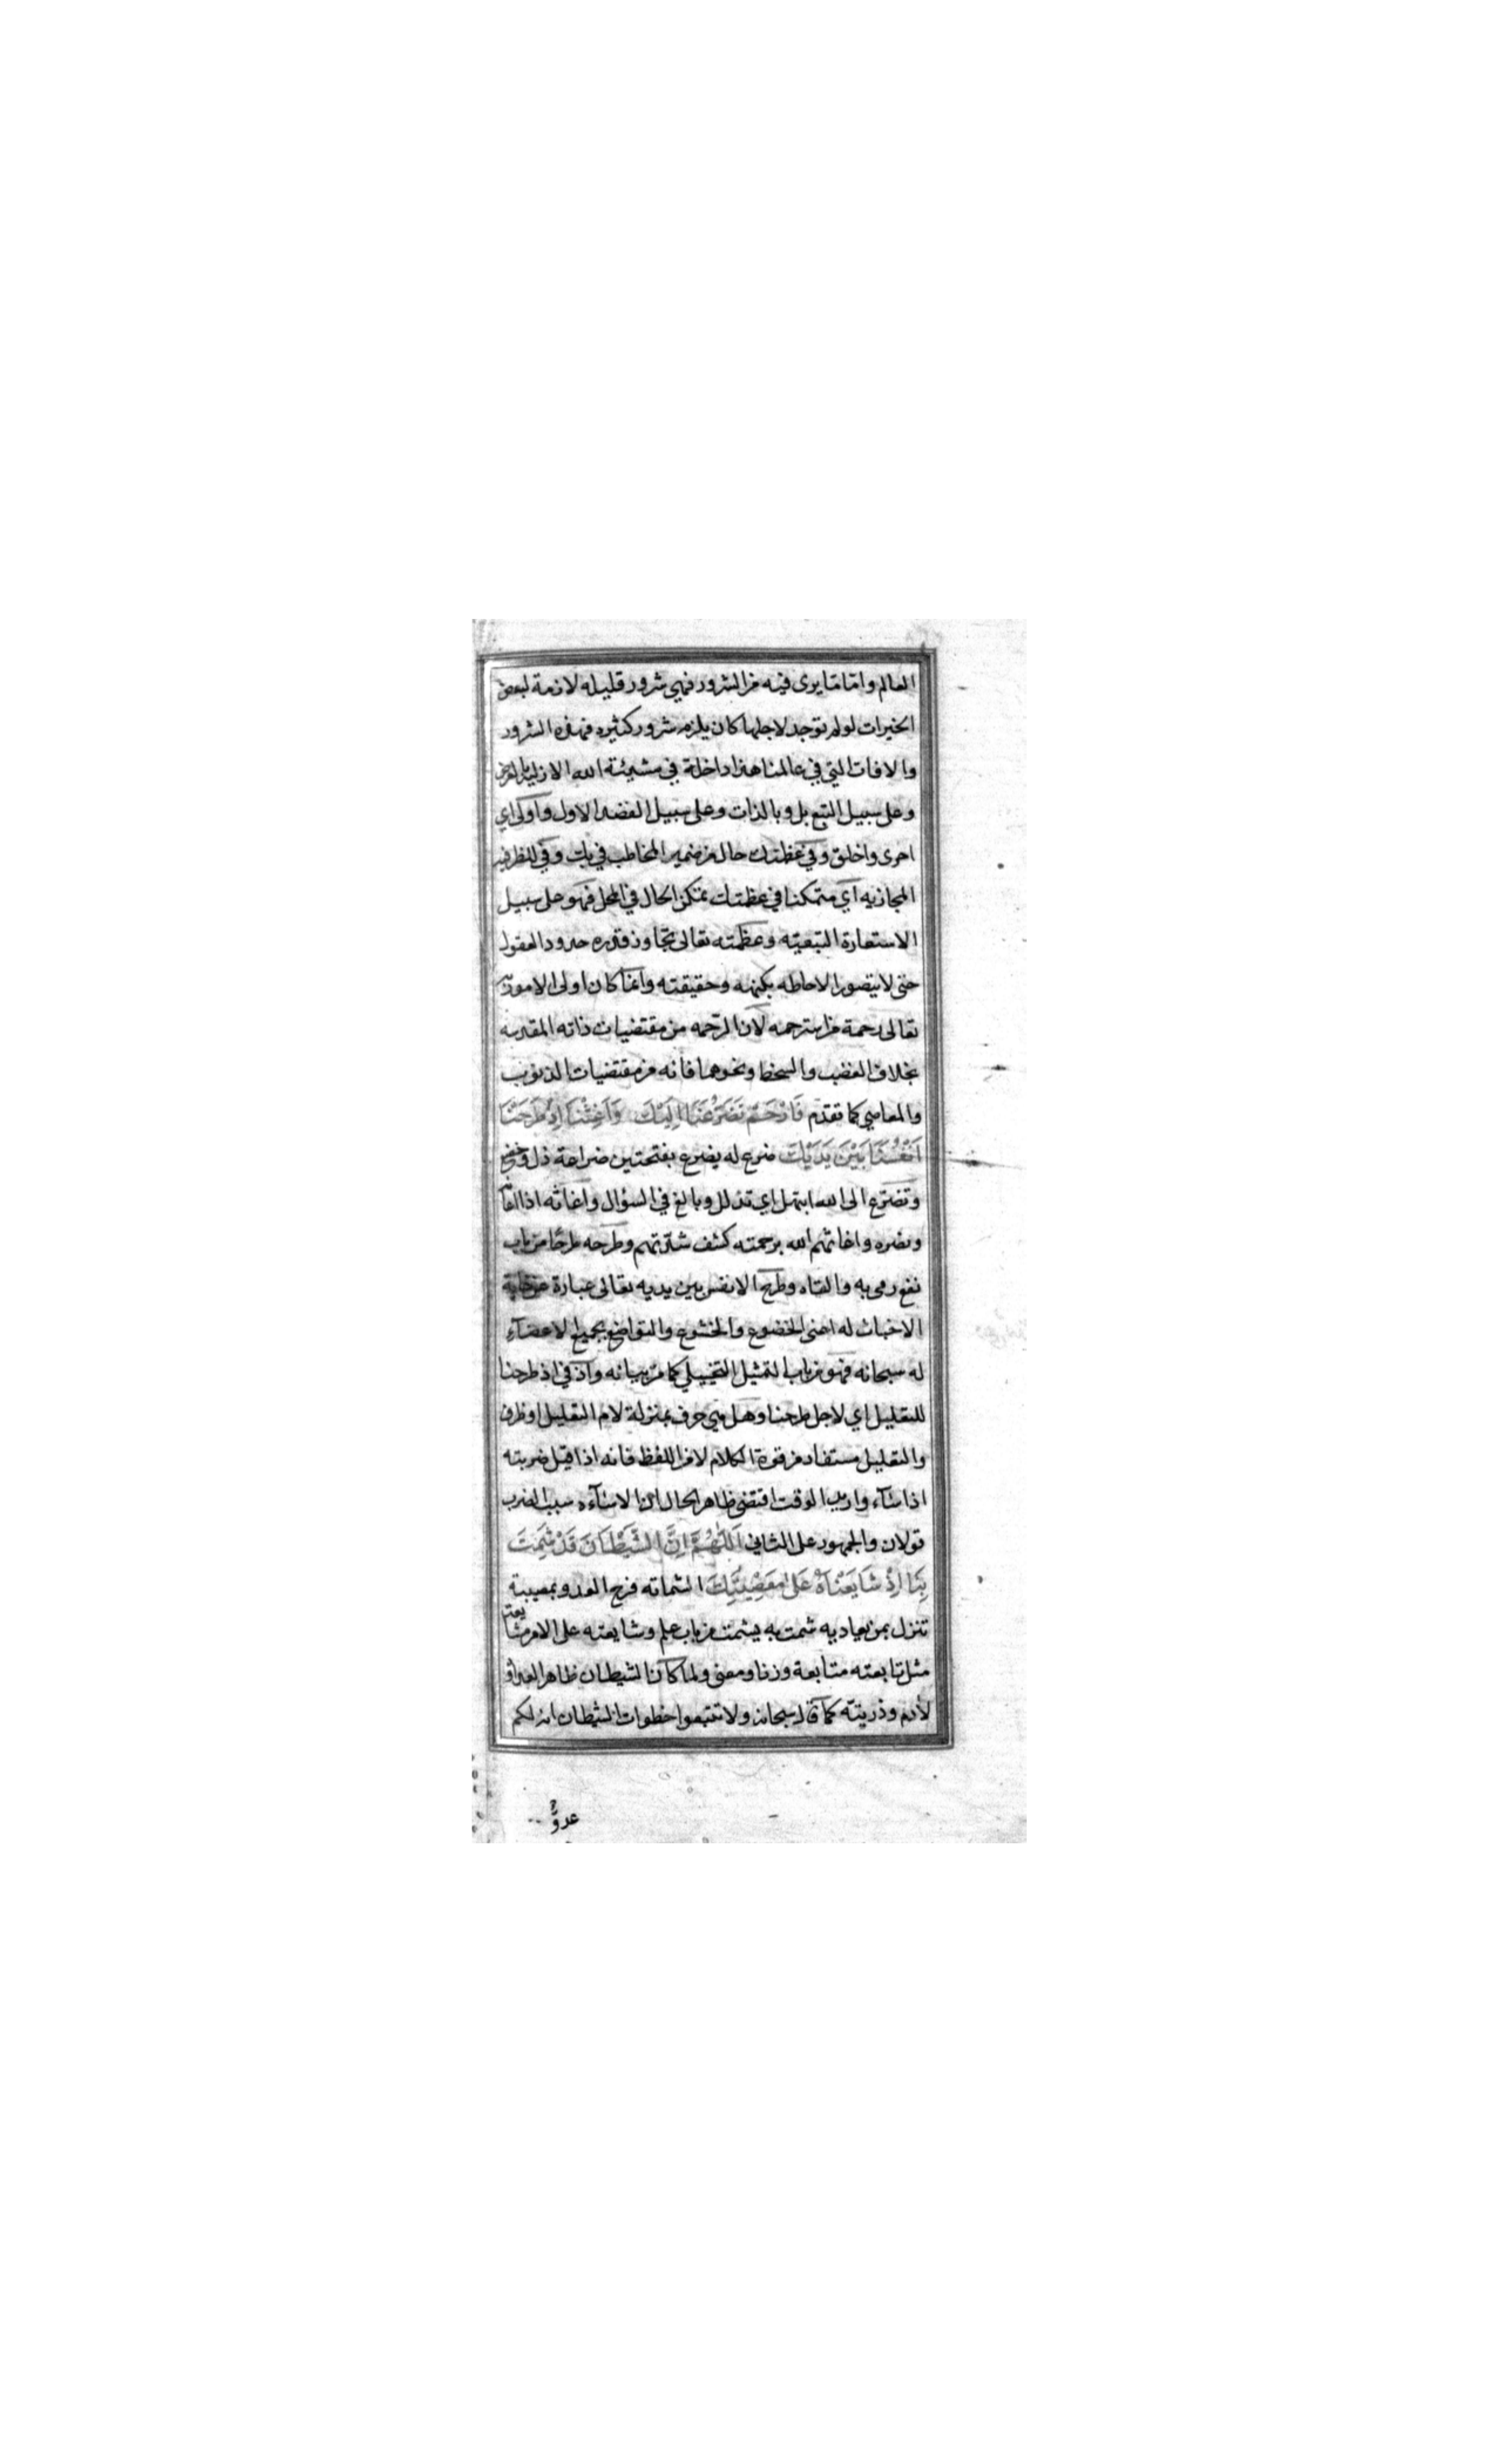 العالم واما ما يرى فيه من الشرور فهي شرور قليله لازمة لبعض
الخيرات لو لم توجد لاجلها كان يلزم شرور كثيره فهذه الشرور
والافات التي في عالمنا هذا داخلة في مشيئة الله الازلية بالعرض
وعلى سبيل التبع بل وبالذات وعلى سبيل القصد الاول واولى اي
احرى واخلق وفي عظمتك حال من ضمير المخاطب في بك وفي للظرفيه
المجازيه اي متمكنا في عظمتك تمكن الحال في المحل فهو على سبيل
الاستعارة التبعيته وعظمته تعالى تجاوز قدره حدود العقول
حتى لا يتصور الاحاطه بكنهه وحقيقته وانما كان اولى الامور به
تعالى رحمة من استرحمه لان الرحمه من مقتضيات ذاته المقدسه
بخلاف الغضب والسخط ونحوهما فانه من مقتضيات الذنوب
والمعاصي كما تقدم فَارْحَمْ تَضَرُّعَنَا اِلَيْكَ وَاَغِثْنَا اِذْ طَرَحْنَا
اَنْفُسَنَا بَيْنَ يَدَيْكَ ضرع له يضرع بفتحتين ضراعة ذل وخضع
وتضرع الى الله ابتهل اي تذلل وبالغ في السؤال واغاثه اذا اعانه
ونصره واغاثهم الله برحمته كشف شدتهم وطرحه طرحًا من باب
نفع رمى به والقاه وطرح الانفس بين يديه تعالى عبارة عن غاية
الاخبات له اعنى الخضوع والخشوع والتواضع بجميع الاعضآء
له سبحانه فهو من باب التمثيل التخييلي كما مر بيانه واذ في اذ طرحنا
للتعليل اي لاجل طرحنا وهل هي حرف بمنزلة لام التعليل او ظرف
والتعليل مستفاد من قوة الكلام لا من اللفظ فانه اذا قيل ضربته
اذا سآء واريد الوقت اقتضى ظاهر الحال ان الاسآءه سبب الضرب
قولان والجمهور على الثاني اَللّٰهُمَّ اِنَّ الشَّيْطَانَ قَدْ شَمِتَ
بِنَا اِذْ شَايَعْنَاهُ عَلى مَعْصِيَتِكَ الشماته فرح العدو بمصيبة
تنزل بمن يعاديه شمت به يشمت من باب علم وشايعته على الامر مشايعة
مثل تابعته متابعة وزنا ومعنى ولما كان الشيطان ظاهر العداوة
لآدم وذريته كما قال سبحانه ولا تتبعوا خطوات الشيطان انه لكم
عدوٌّ